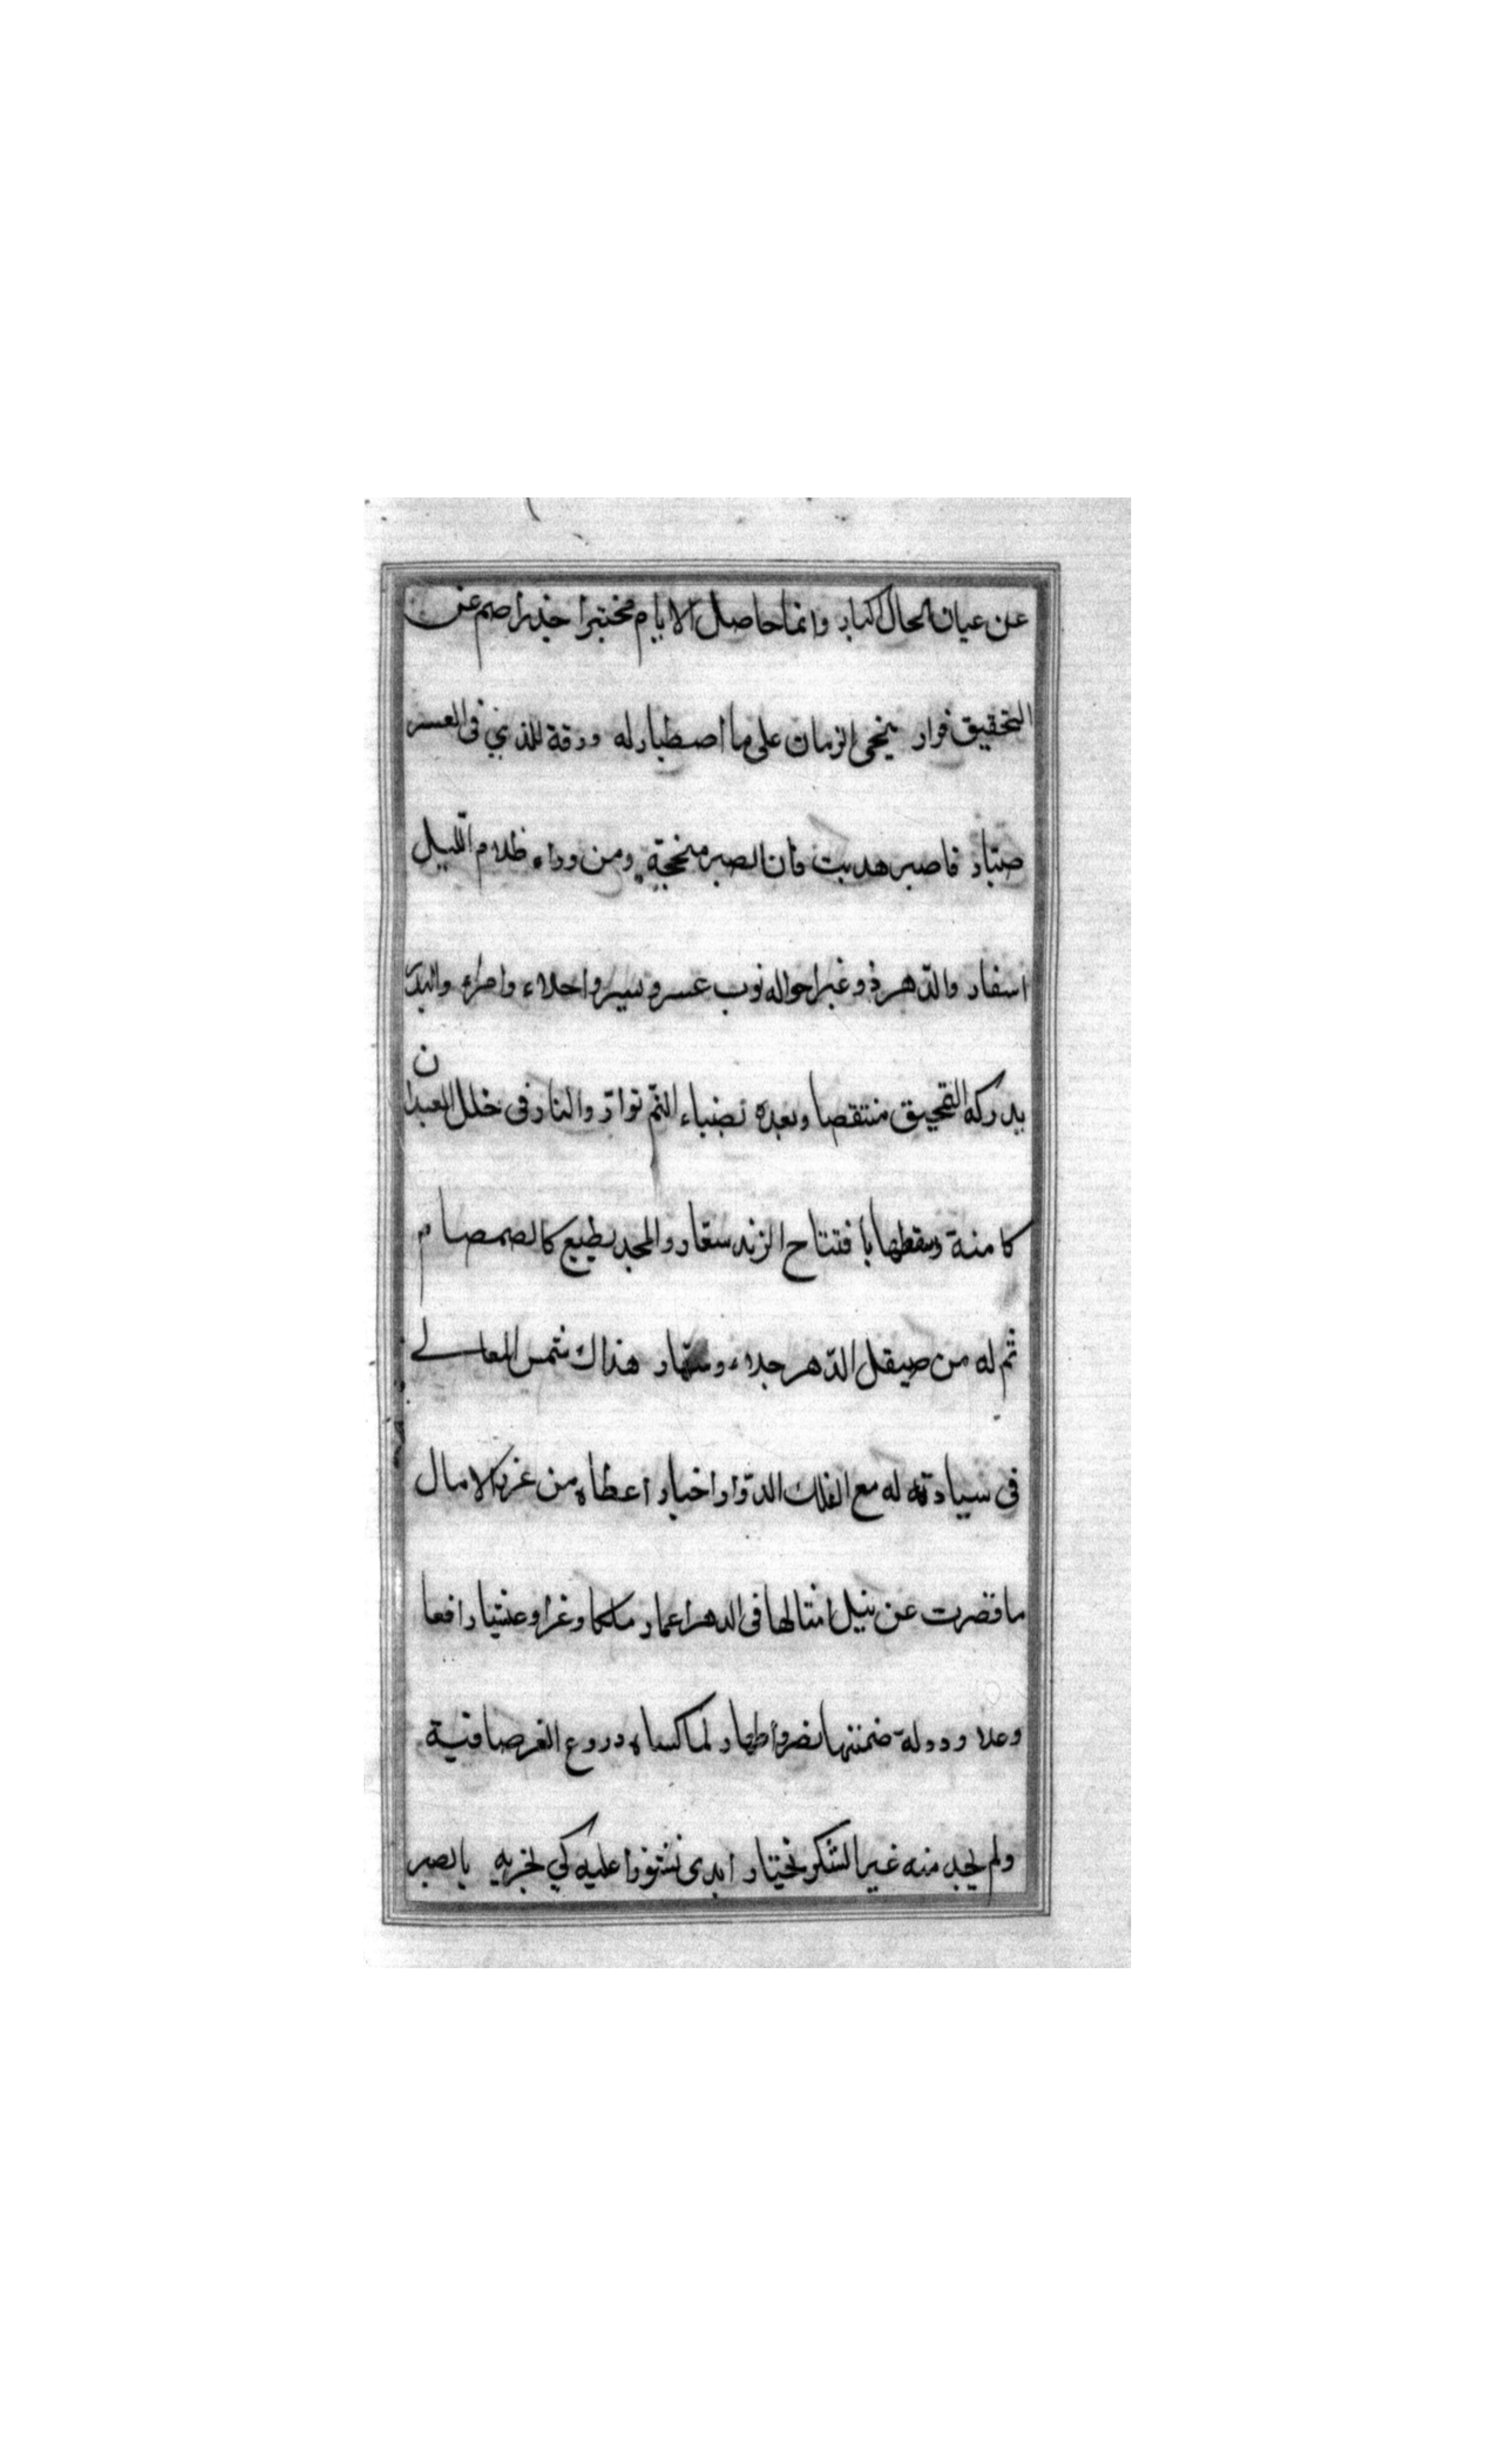 عن عيان الحال اكبار وانما حاصل الايام مختبرا جذر اصم عن
التحقيق فرار ينحى الزمان على ما اصطبار له ورقة للذي فى العسر
صبار فاصبر هديت فان الصبر منجحة ومن وراء ظلام الليل
اسفار والدهر ذو غير احواله نوب عسر ويسر واحلاء وامرار والبدر
يدركه التمحيق منتقصا وبعده بضياء التم نوار والنار فى خلل العيدان
كامنة وسقطها بافتتاح الزند سعار والمجد يطبع كالصمصام
ثم له من صيقل الدهر جلاء وشهار هذاك شمس المعالى
فى سيادته له مع الفلك الدوار اخبار اعطاه من غرر الامال
ما قصرت عن نيل امثالها فى الدهر اعمار ملكا وعزا وعيشا رافعا
وعلا ودولة ضمنتها نصر واظهار لما كساه دروع العز ضافية
ولم يجد منه غير الشكر يختار ابدى نشوزا عليه كي يجربه بالصبر